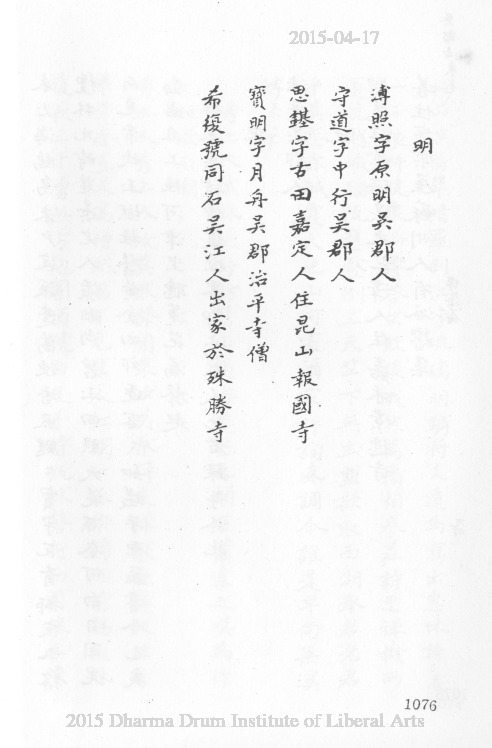 2015-04-17
明
溥照字原明吳郡人
守道字中行吳郡人
思鑑字古田嘉定人住昆山報國寺
寶明字月舟吳郡治平寺僧
希復號同石吳江人出家於殊勝寺
1076
2015 Dharma Drum Institute of Liberal Arts